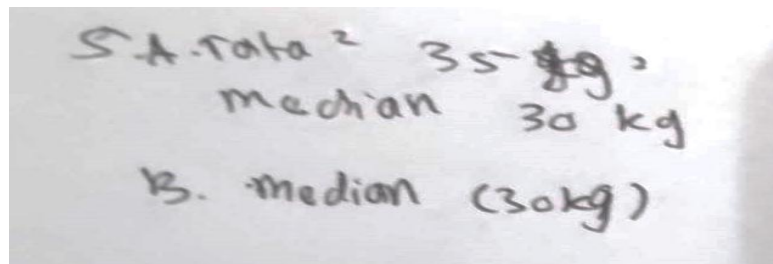 5 A. rata² 35 kg
median 30 kg
B. median (30kg)